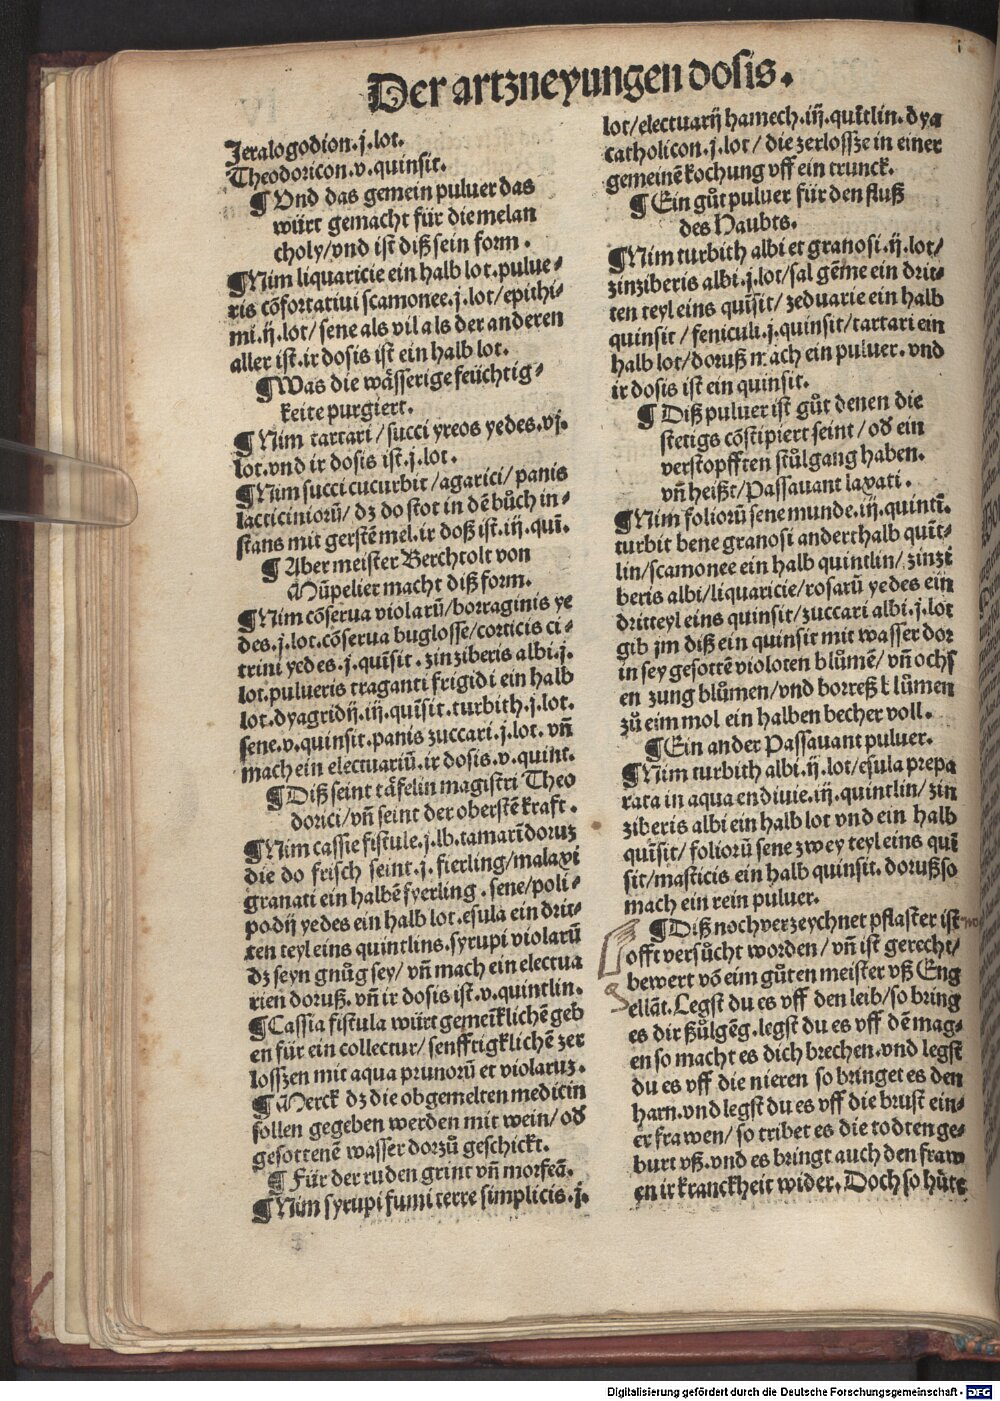 Der artzneyungen dosis.
Jeralogodion.j.lot.
Theodoricon.v.quinsit.
¶ Vnd das gemein puluer das
würt gemacht für die melan
choly/vnd ist diß sein form.
¶Nim liquaricie ein halb lot.pulue-
ris cõfortatiui scamonee.j.lot/epithi-
mi.ij.lot/sene als vil als der anderen
aller ist.ir dosis ist ein halb lot.
¶Was die wåsserige feüchtig-
keite purgiert.
¶Nim tartari/succi yreos yedes.vj.
lot.vnd ir dosis ist.j.lot.
¶Nim succi cucurbit/agarici/panis
lacticiniorũ/dz do stot in dẽ bůch in-
stans mit gerstẽ mel.ir doß ist.iij.quĩ.
¶ Aber meister Berchtolt von
Mũpelier macht diß form.
¶Nim cõserua violarũ/borraginis ye
des.j.lot.cõserua buglosse/corticis ci-
trini yedes.j.quĩsit.zinziberis albi.j.
lot.pulueris traganti frigidi ein halb
lot.dyagridij.iij.quĩsit.turbith.j.lot.
sene.v.quinsit.panis zuccari.j.lot.vñ
mach ein electuariũ.ir dosis.v.quint.
¶Diß seint tåfelin magistri Theo
dorici/vñ seint der oberstẽ kraft.
¶Nim cassie fistule.j.lb.tamarĩdoruz
die do frisch seint.j.fierling/malaxi
granati ein halbẽ fyerling.sene/poli-
podij yedes ein halb lot.esula ein drit-
ten teyl eins quintlins.syrupi violarũ
dz seyn gnůg sey/vñ mach ein electua
rien doruß.vñ ir dosis ist.v.quintlin.
¶Cassia fistula würt gemeĩklichẽ geb
en für ein collectur/senfftigklichẽ zer
losszen mit aqua prunorũ et violaruz.
¶Merck dz die obgemelten medicin
sollen gegeben werden mit wein/od
gesottenẽ wasser dorzů geschickt.
¶ Für der ruden grint vñ morfeã.
¶Nim syrupi fumi terre simplicis.j.
lot/electuarij hamech.iij.quĩtlin.dya
catholicon.j.lot/die zerlossze in einer
gemeinẽ kochung vff ein trunck.
¶Ein gůt puluer für den fluß
des Haubts.
¶Nim turbith albi et granosi.ij.lot/
zinziberis albi.j.lot/sal gẽme ein drit-
ten teyl eins quĩsit/zeduarie ein halb
quinsit/feniculi.j.quinsit/tartari ein
halb lot/doruß mach ein puluer.vnd
ir dosis ist ein quinsit.
¶ Diß puluer ist gůt denen die
stetigs cõstipiert seint/od ein
verstopfften stůlgang haben.
vñ heißt/Passauant laxati.
¶Nim foliorũ sene munde.iij.quintĩ.
turbit bene granosi anderthalb quĩt-
lin/scamonee ein halb quintlin/zinzi
beris albi/liquaricie/rosarũ yedes ein
dritteyl eins quinsit/zuccari albi.j.lot
gib jm diß ein quinsit mit wasser dor
in sey gesottẽ violoten blůmẽ/vñ ochs
en zung blůmen/vnd borreß blůmen
zů eim mol ein halben becher voll.
¶Ein ander Passauant puluer.
¶Nim turbith albi.ij.lot/esula prepa
rata in aqua endiuie.iij.quintlin/zin
ziberis albi ein halb lot vnd ein halb
quĩsit/foliorũ sene zwey teyl eins quĩ
sit/masticis ein halb quinsit.doruß so
mach ein rein puluer.
¶Diß noch verzeychnet pflaster ist
offt versůcht worden/vñ ist gerecht/
bewert võ eim gůten meister vß Eng
ellãt.Legst du es vff den leib/so bring
es dir stůlgẽg.legst du es vff dẽ mag-
en so macht es dich brechen.vnd legst
du es vff die nieren so bringet es den
harn.vnd legst du es vff die brust ein-
er frawen/so tribet es die todten ge-
burt vß.vnd es bringt auch den fraw
en ir kranckheit wider.Doch so hüte
Digitalisierung gefördert durch die Deutsche Forschungsgemeinschaft - DFG